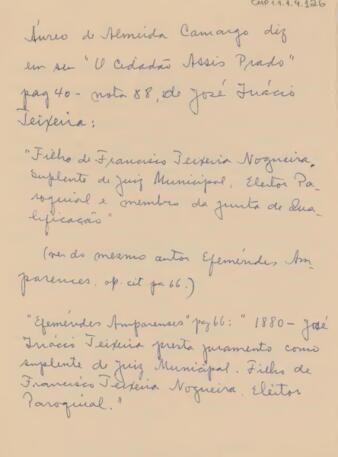 CMP 1.1.4.126
Áureo de Almeida Camargo diz
em seu "O Cidadão Assis Prado"
pag 40 - nota 88, de José Inácio
Teixeira:
"Filho de Francisco Teixeira Nogueira,
Suplente de Juiz Municipal, Eleitor Pa-
roquial e membro da junta de Qua-
lificação"
(ver do mesmo autor Efemérides Am-
parences, op. cit pa 66.)
"Efemérides Amparenses" pag 66: "1880 - José
Inácio Teixeira presta juramento como
suplente de Juiz Municipal. Filho de
Francisco Teixeira Nogueira. Eleitor
Paroquial."